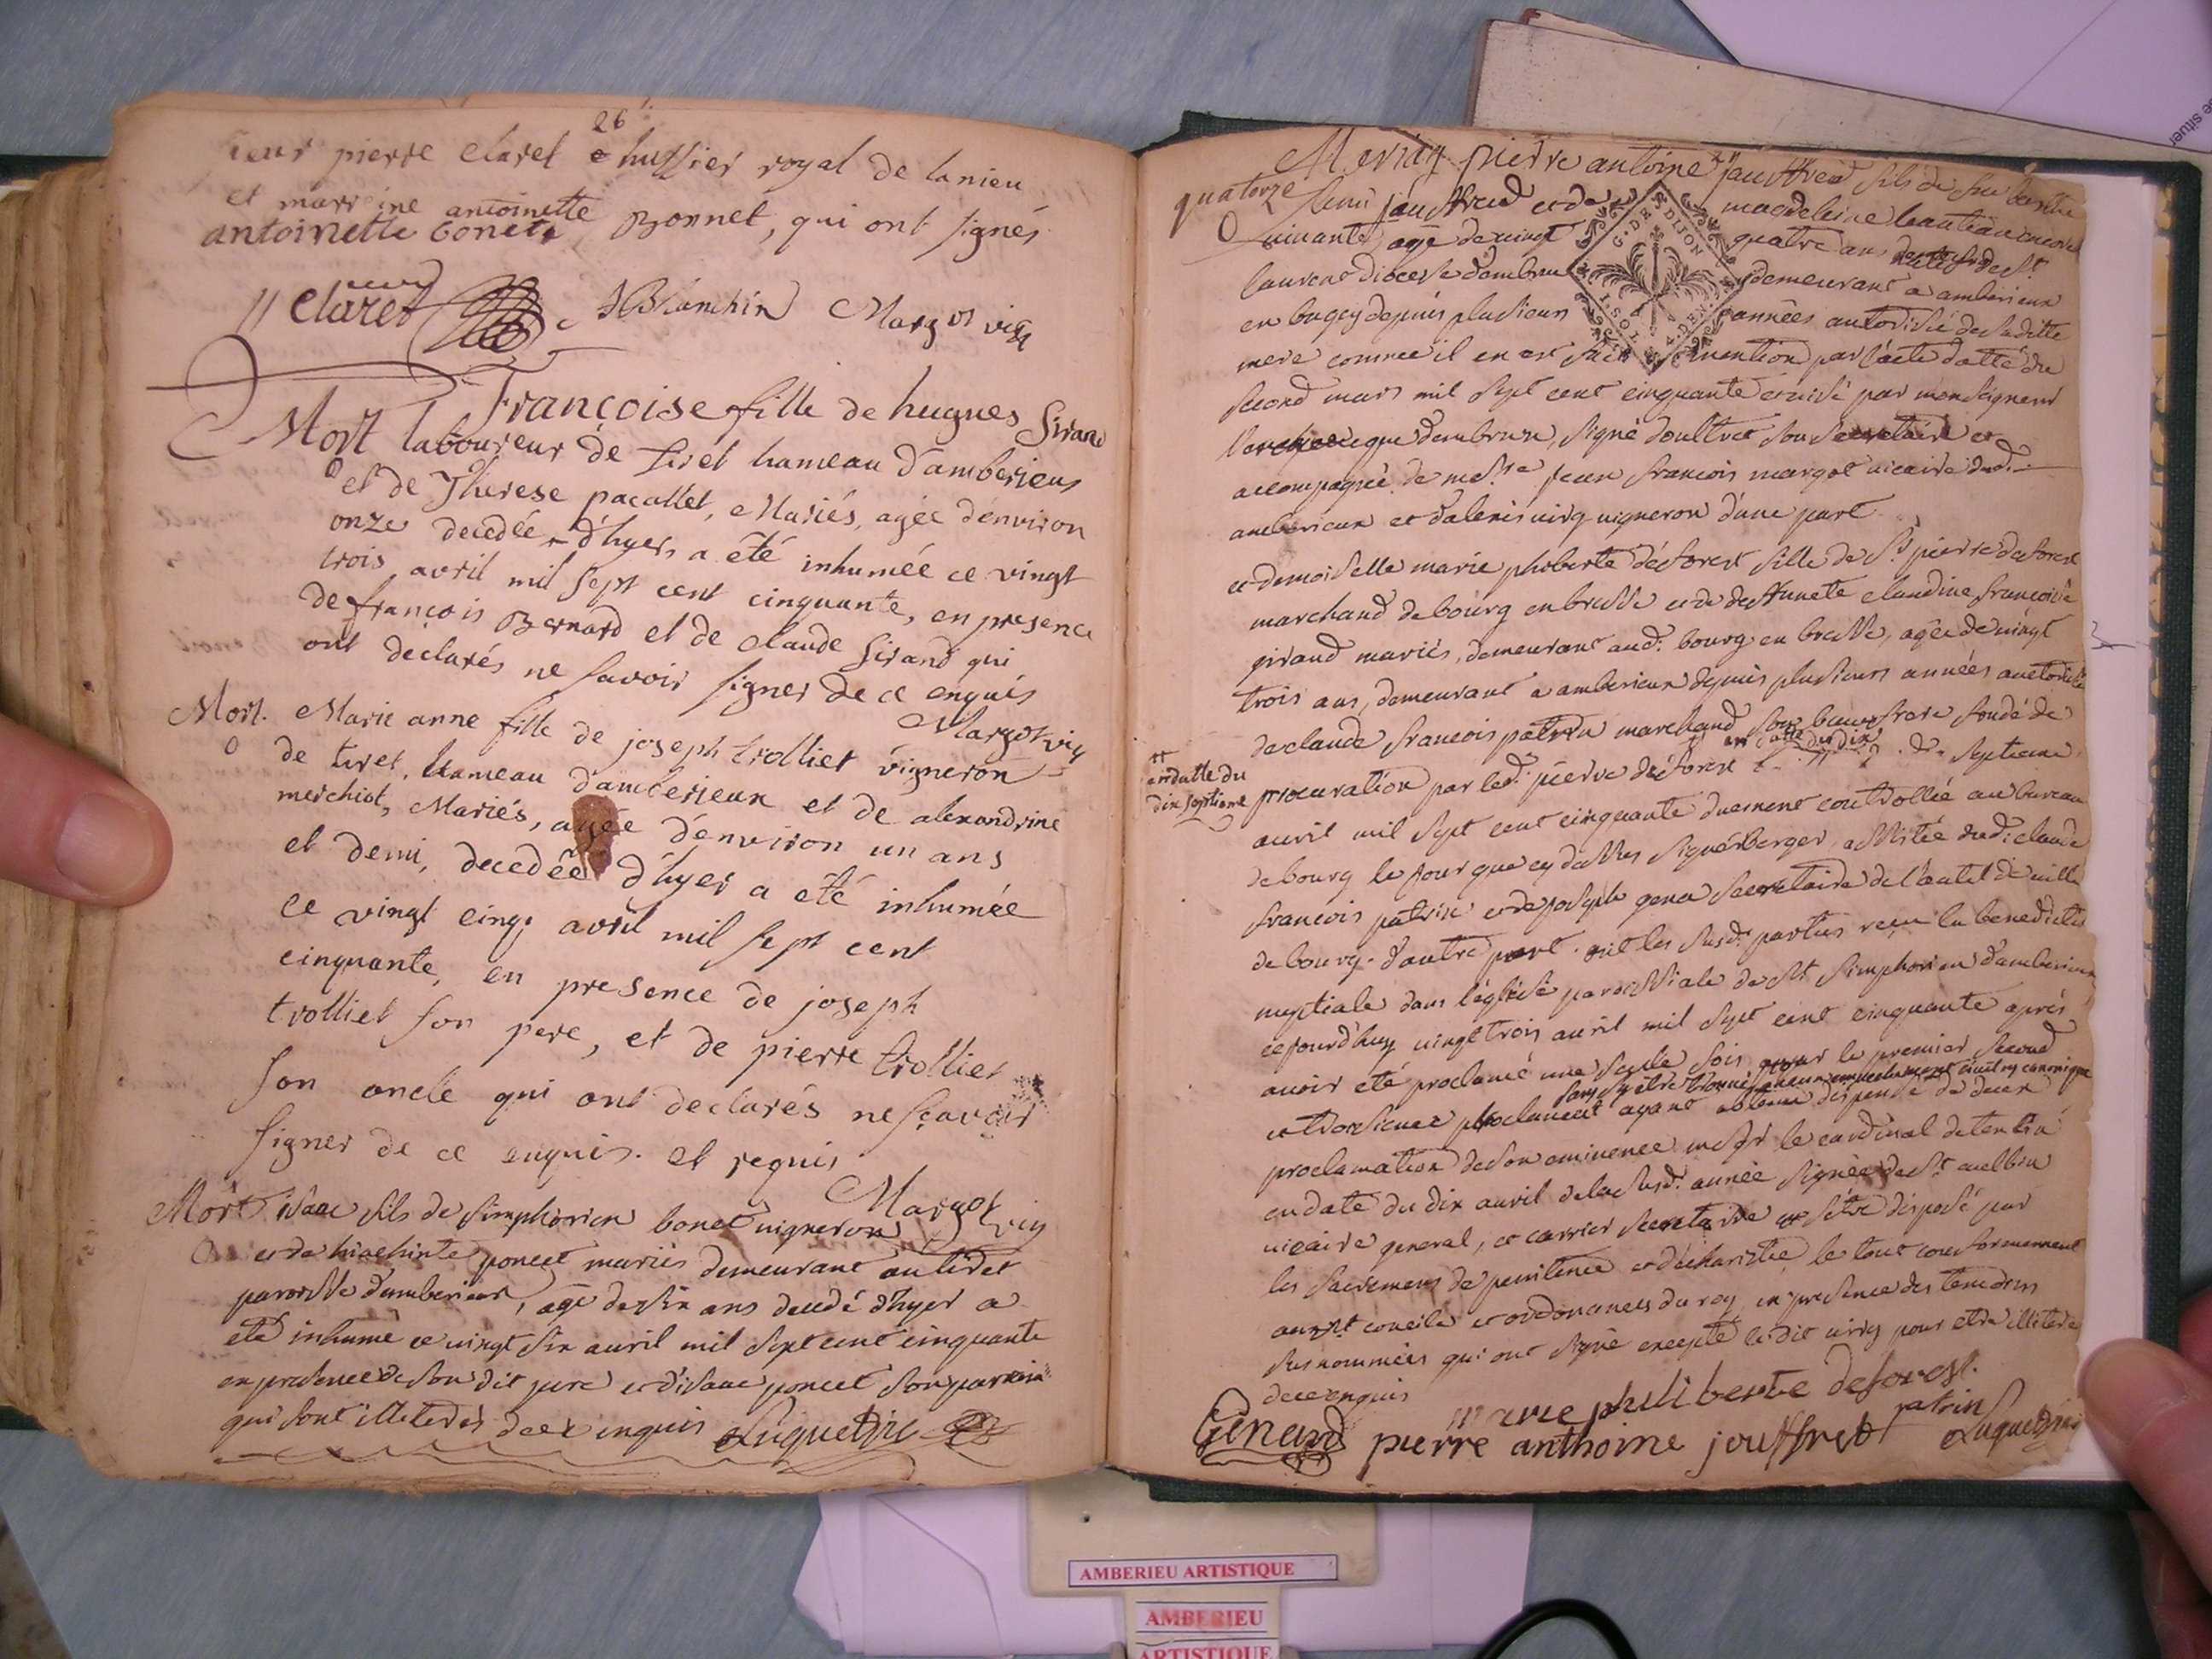 26
sieur pierre claret huissier royal de lanieu
et marrine antoinette Bonnet, qui ont signés
antoinette bonete
Claret Blanchin Margot vic
Françoise fille de hugues Sirand
Mort laboureur de tiret hameau d'amberieux
et de Therese pacallet, Mariés, agée d'environ
onze decedée d'hyer, a été inhumée ce vingt
trois avril mil sept cent cinquante, en presence
de françois Bernard et de claude Sirand qui
ont declarés ne savoir signer de ce enquis
Margot vic
Mort. Marie anne fille de joseph trolliet vigneron
de tiret, hameau d'amberieux et de alexandrine
merchiot, Mariés, agée d'environ un ans
et demi, decedée d'hyer a été inhumée
ce vingt cinq avril mil sept cent
cinquante, en presence de joseph
trolliet son pere, et de pierre trolliet
son oncle qui ont declarés ne sçavoir
signer de ce enquis. et requis
Margot vic
Mort isaac fils de simphorien bonet vigneron
et de hiachinte poncet mariés demeurant au tiret
paroisse d'amberieux, agé de six ans decedé d'hyer a
eté inhumé ce vingt six avril mil sept cent cinquante
en presence de son dit pere et d'isaac poncet son parrain
qui sont illiteres de ce enquis
G. DE DIJON
I. SOL. 4. DEN.
Mariag pierre antoine jauffred fils de feu
quatorze jauffred et de magdeleine
vivante, agé de vingt quatre ans de St
laurent diocese d'ambrun demeurant a amberieux
en bugey depuis plusieurs années autorisé de sa ditte
mere comme il en est fait mention par l'acte datté du
second mars mil sept cent cinquante et visé par monseigneur
l'archeveque d'ambrun, signé doultres son secretaire et
accompagné de messre jean françois margot vicaire dud.
amberieux et d'alexis virg vigneron d'une part
et demoiselle marie phiberte deforest fille de Sr pierre deforest
marchand de bourg en bresse et de deffunete claudine françoise
giraud mariés, demeurant aud. bourg en bresse, agée de vingt
trois ans, demeurant a amberieux depuis plusieurs années autorisée
de claude françois patrin marchand son beaufrere fondé de
procuration par led. pierre deforest septieme
en datte du
dix septieme
avril mil sept cent cinquante duement controllée au bureau
de bourg le jour que cy dessus signé berger, assistée dud. claude
françois patrin et de joseph genea secretaire de l'autel de ville
de bourg. d'autre part. ont les susd. parties reçu la benedictio
nuptiale dans l'eglise paroissiale de St simphorien d'amberieux
ce jourd'huy vingt trois avril mil sept cent cinquante aprés
avoir eté proclamé une seule fois pour le premier second
sans s'y etre trouvé aucun empechement civil ny canonique
et troisieme proclamat ayant obtenu dispense de deux
proclamation de son eminence msgr le cardinal de tencin
en date du dix avril de la susd. année signée de St
vicaire general, et carrier secretaire et s'etre disposé par
les sacremens de penitence et d'echaristie, le tout conformement
aux St concile et ordonnances du roy, en presence des temoins
susnommées qui ont signé excepté le dit virg pour etre illitere
de ce enquis
marie philiberte deforest.
Genard pierre anthoine jouffret patrin
AMBERIEU ARTISTIQUE
AMBERIEU
ARTISTIQUE